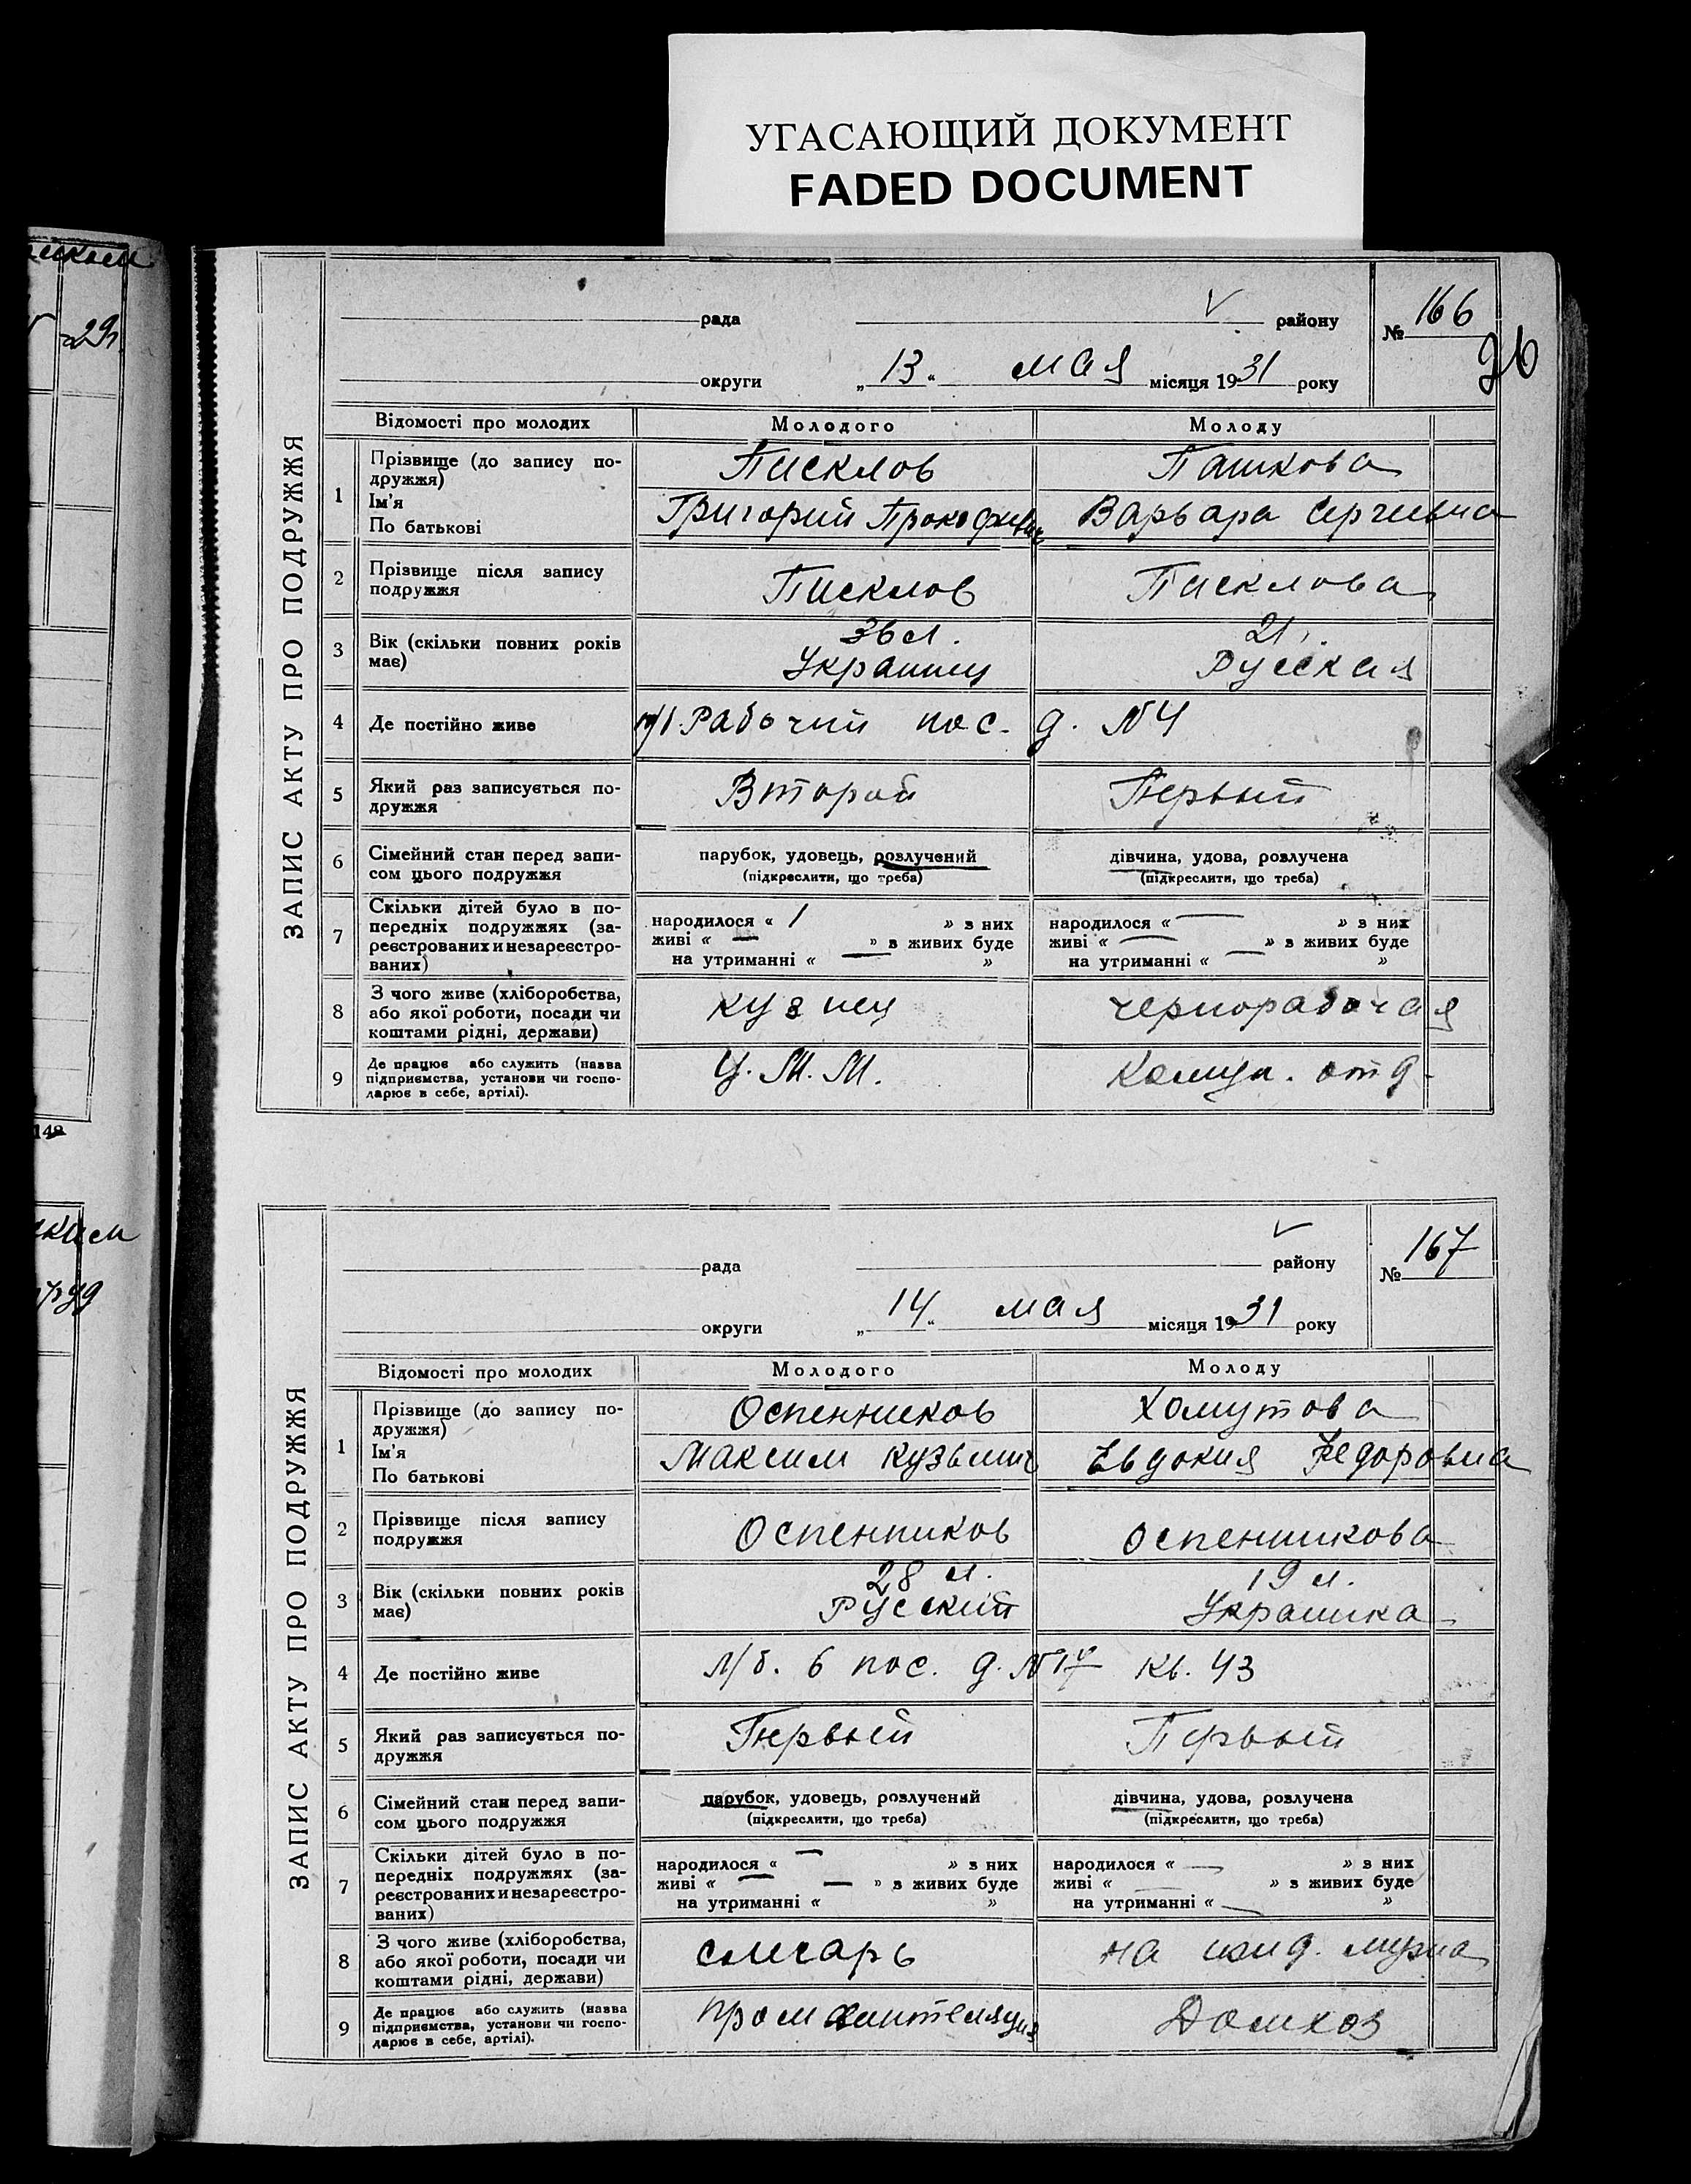 УГАСАЮЩИЙ ДОКУМЕНТ
FADED DOCUMENT
-29
149
ЗАПИС АКТУ ПРО ПОДРУЖЖЯ
рада району
№ 166
26
округи „13“ мая місяця 1931 року
Відомості про молодих Молодого Молоду
1 Прізвище (до запису по-
дружжя) Писклов Пашкова
Ім'я
По батькові Григорий Прокофиевич Варвара Сергиевна
2 Прізвище після запису
подружжя Писклов Писклова
3 Вік (скільки повних років
має) 36 л. 21
Украинец Русская
4 Де постійно живе Рабочий пос. д. №4
5 Який раз записується по-
дружжя Второй Первый
6 Сімейний стан перед запи-
сом цього подружжя
парубок, удовець, розлучений
(підкреслити, що треба)
дівчина, удова, розлучена
(підкреслити, що треба)
7 Скільки дітей було в по-
передніх подружжях (за-
реєстрованих и незареєстро-
ваних)
народилося « 1 » з них
живі « — » з живих буде
на утриманні « — »
народилося « — » з них
живі « — » з живих буде
на утриманні « — »
8 З чого живе (хліборобства,
або якої роботи, посади чи
коштами рідні, держави) кузнец чернорабочая
9 Де працює або служить (назва
підприємства, установи чи госпо-
дарює в себе, артілі). Ц. М. М. Комун. отд.
ЗАПИС АКТУ ПРО ПОДРУЖЖЯ
рада району
№ 167
округи „14“ мая місяця 1931 року
Відомості про молодих Молодого Молоду
1 Прізвище (до запису по-
дружжя) Оспенников Хомутова
Ім'я
По батькові Максим Кузьмич Евдокия Федоровна
2 Прізвище після запису
подружжя Оспенников Оспенникова
3 Вік (скільки повних років
має) 28 л. 19 л.
Русский Украинка
4 Де постійно живе л/б. 6 пос. д. №17 кв. 43
5 Який раз записується по-
дружжя Первый Первый
6 Сімейний стан перед запи-
сом цього подружжя
парубок, удовець, розлучений
(підкреслити, що треба)
дівчина, удова, розлучена
(підкреслити, що треба)
7 Скільки дітей було в по-
передніх подружжях (за-
реєстрованих и незареєстро-
ваних)
народилося « — » з них
живі « — — » з живих буде
на утриманні « »
народилося « — » з них
живі « — » з живих буде
на утриманні « — »
8 З чого живе (хліборобства,
або якої роботи, посади чи
коштами рідні, держави) слесарь на ижд. мужа
9 Де працює або служить (назва
підприємства, установи чи госпо-
дарює в себе, артілі). Промвинтеляция Домхоз